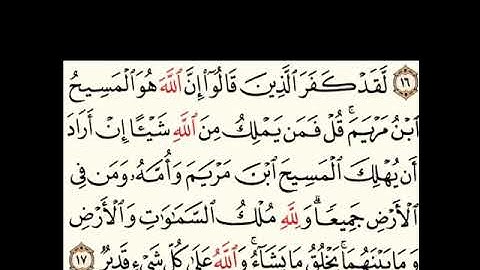 ١٦ لَّقَدْ كَفَرَ ٱلَّذِينَ قَالُوٓا۟ إِنَّ ٱللَّهَ هُوَ ٱلْمَسِيحُ
ٱبْنُ مَرْيَمَ ۚ قُلْ فَمَن يَمْلِكُ مِنَ ٱللَّهِ شَيْـًٔا إِنْ أَرَادَ
أَن يُهْلِكَ ٱلْمَسِيحَ ٱبْنَ مَرْيَمَ وَأُمَّهُۥ وَمَن فِى
ٱلْأَرْضِ جَمِيعًا ۗ وَلِلَّهِ مُلْكُ ٱلسَّمَـٰوَٰتِ وَٱلْأَرْضِ
وَمَا بَيْنَهُمَا ۚ يَخْلُقُ مَا يَشَآءُ ۚ وَٱللَّهُ عَلَىٰ كُلِّ شَىْءٍ قَدِيرٌ ١٧